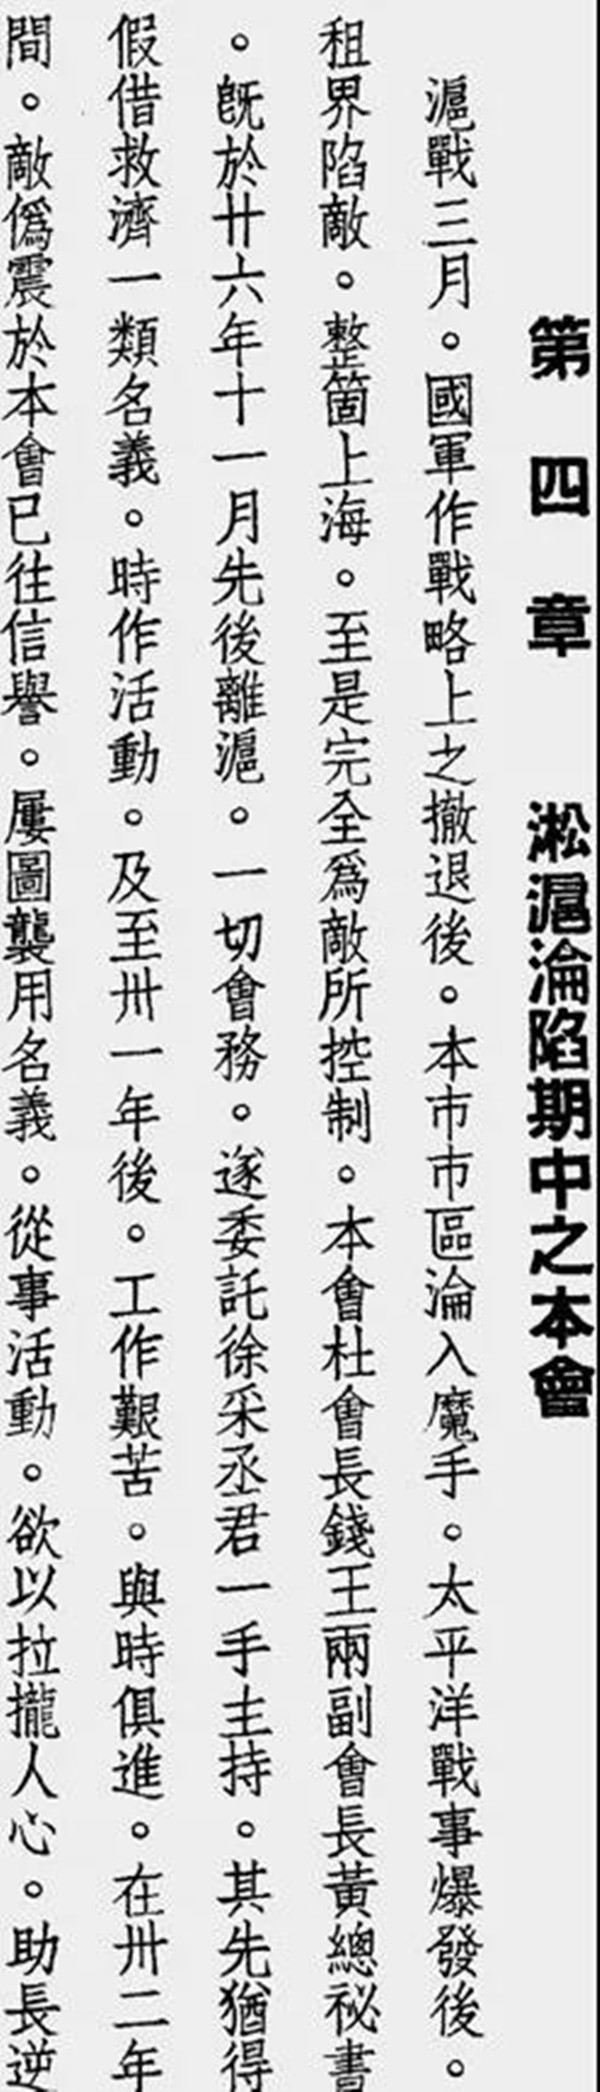 第四章 淞滬淪陷期中之本會
滬戰三月。國軍作戰略上之撤退後。本市市區淪入魔手。太平洋戰事爆發後。
租界陷敵。整箇上海。至是完全爲敵所控制。本會杜會長錢王兩副會長黃總祕書
。旣於廿六年十一月先後離滬。一切會務。遂委託徐采丞君一手主持。其先猶得
假借救濟一類名義。時作活動。及至卅一年後。工作艱苦。與時俱進。在卅二年
間。敵僞震於本會已往信譽。屢圖襲用名義。從事活動。欲以拉攏人心。助長逆